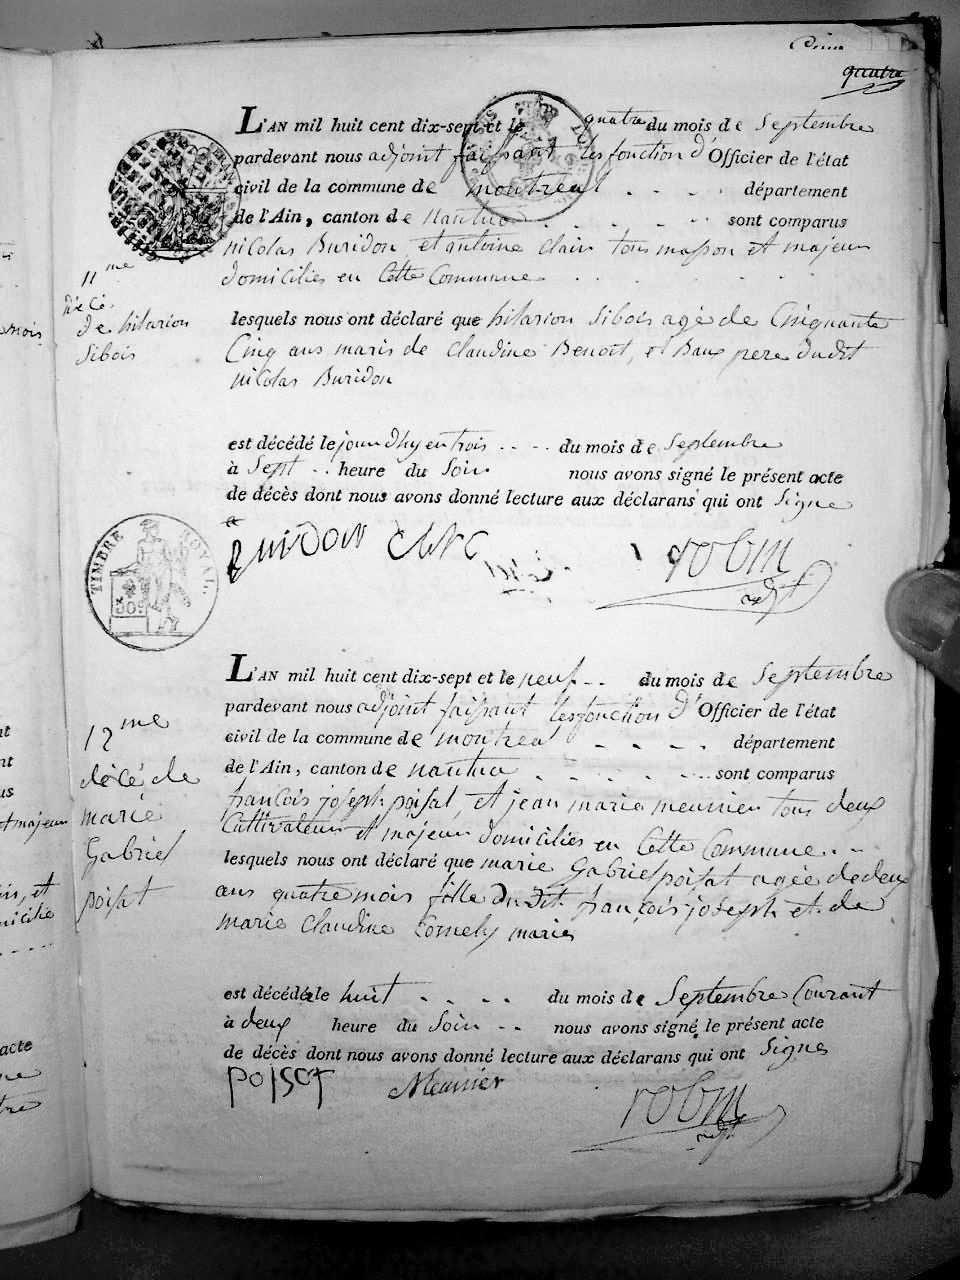 quatre
L'AN mil huit cent dix-sept et le quatre du mois de Septembre
pardevant nous adjoint faissant les fonction d' Officier de l'état
civil de la commune de montreal département
de l'Ain, canton de nantua sont comparus
nicolas Buridon et antoine clair tous masson et majeur
domiciliés en Cette Commune
11me
décé
de hilarion
Sibois
lesquels nous ont déclaré que hilarion Sibois agé de Cinquante
Cinq ans maris de Claudine Benoit, et Baux pere dudit
nicolas Buridon
est décédé le jourdhy en trois du mois de Septembre
à Sept heure du Soir nous avons signé le présent acte
de décès dont nous avons donné lecture aux déclarans qui ont Signe
Buridon Clerc robin
adjt
TIMBRE ROYAL
50c
L'AN mil huit cent dix-sept et le neuf du mois de Septembre
pardevant nous adjoint faissant les fonction d' Officier de l'état
civil de la commune de montreal département
de l'Ain, canton de nantua sont comparus
françois joseph poisat, et jean marie meunier tous deux
Cultivateur et majeur domiciliés en Cette Commune
12me
décé de
marie
Gabriel
poisat
lesquels nous ont déclaré que marie Gabriel poisat agée de deux
ans quatre mois fille dudit françois joseph et de
marie Claudine Cornely mariés
est décédée le huit du mois de Septembre Courant
à deux heure du Soir nous avons signé le présent acte
de décès dont nous avons donné lecture aux déclarans qui ont Signes
poisat Meunier robin
adjt